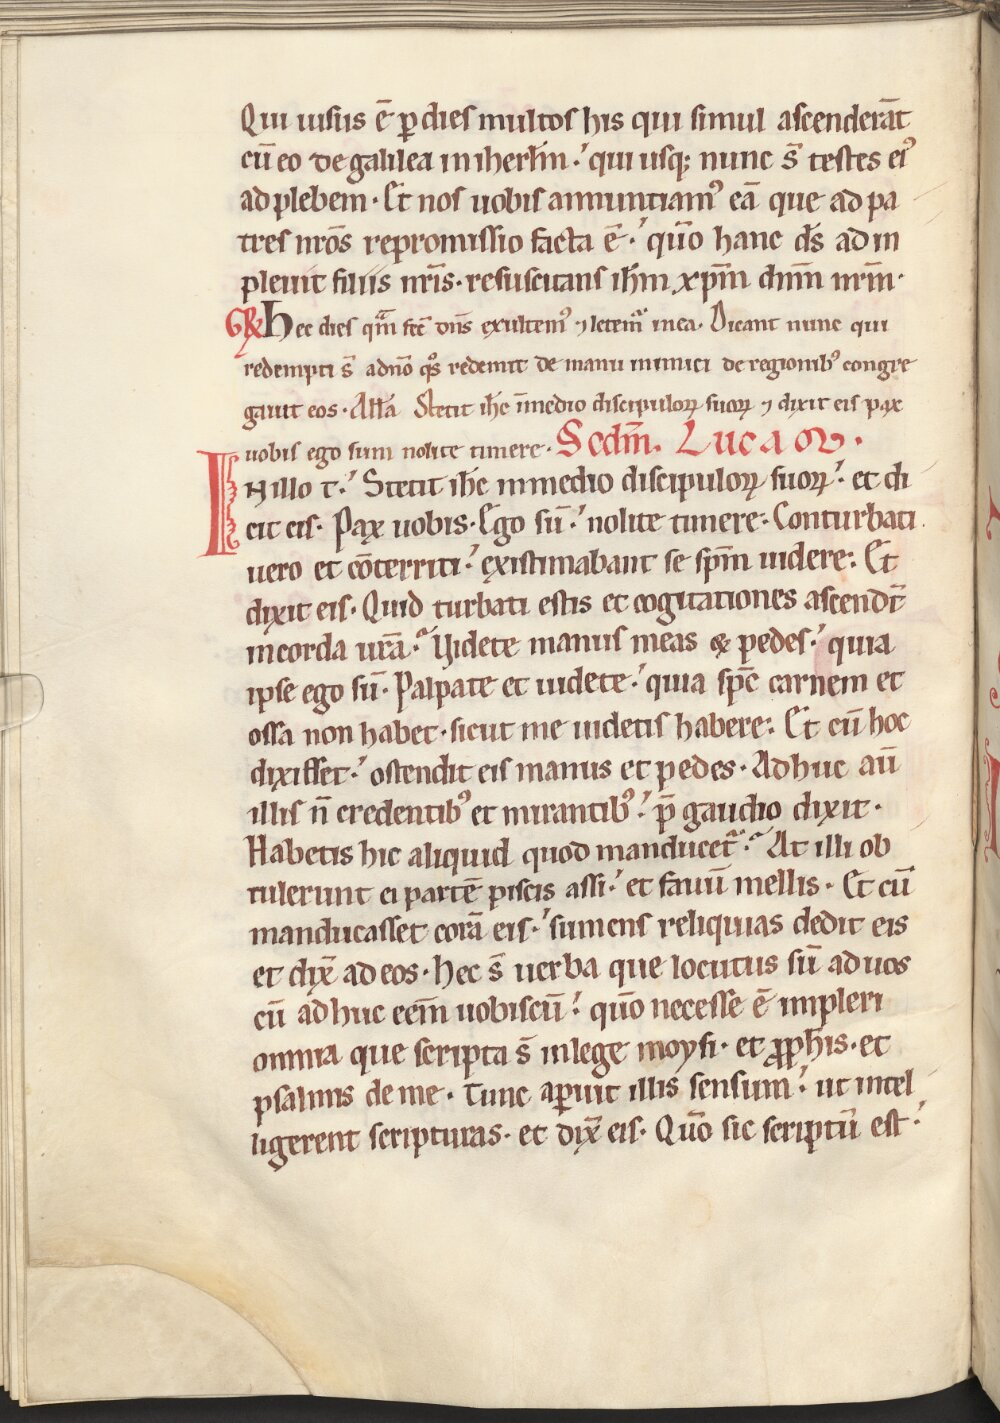 Qui uisus ē ꝑ dies multos his qui simul ascenderāt
cū eo de galilea in iherl̄m .ʹ qui usqꝫ nunc s̄ testes eiꝰ
ad plebem · Et nos uobis annuntiamꝰ eā que ad pa
tres nr̄os repromissio facta ē .ʹ qūo hanc ds̄ ad in
pleuit filiis nr̄is · resuscitans ih̄m xp̄m dn̄m nr̄m ·
GR Hec dies quā fec̄ dn̄s exultemꝰ ⁊ letemꝰ in ea · Dicant nunc qui
redempti s̄ a dn̄o qͦs redemit de manu inimici de regionibꝰ congre
gauit eos · All̄a Stetit ih̄c ī medio discipuloꝝ suoꝝ ⁊ dixit eis pax
uobis ego sum nolite timere · Scdm̄ . Lucam .
IN illo t̄ .ʹ Stetit ih̄c in medio discipuloꝝ suoꝝ .ʹ et di
cit eis · Pax uobis · Ego sū .ʹ nolite timere · Conturbati
uero et cōterriti .ʹ existimabant se sp̄m uidere : Et
dixit eis · Quid turbati estis et cogitationes ascendt̄
in corda ur̄a . Videte manus meas & pedes .ʹ quia
ipse ego sū · Palpate et uidete .ʹ quia sp̄c carnem et
ossa non habet · sicut me uidetis habere : Et cū hoc
dixisset .ʹ ostendit eis manus et pedes · Adhuc aū
illis n̄ credentibꝰ et mirantibꝰ .ʹ p̄ gaudio dixit ·
Habetis hic aliquid quod manducet̄ . At illi ob
tulerunt ei partē piscis assi .ʹ et fauū mellis · Et cū
manducasset corā eis .ʹ sumens reliquias dedit eis
et dix̄ ad eos · Hec s̄ uerba que locutus sū ad uos
cū adhuc eēm uobiscū .ʹ qūo necesse ē impleri
omnia que scripta s̄ in lege moysi · et ꝓph̄is · et
psalmis de me · Tunc aꝑuit illis sensum .ʹ ut intel
ligerent scripturas · et dix̄ eis · Qūo sic scriptū est .ʹ